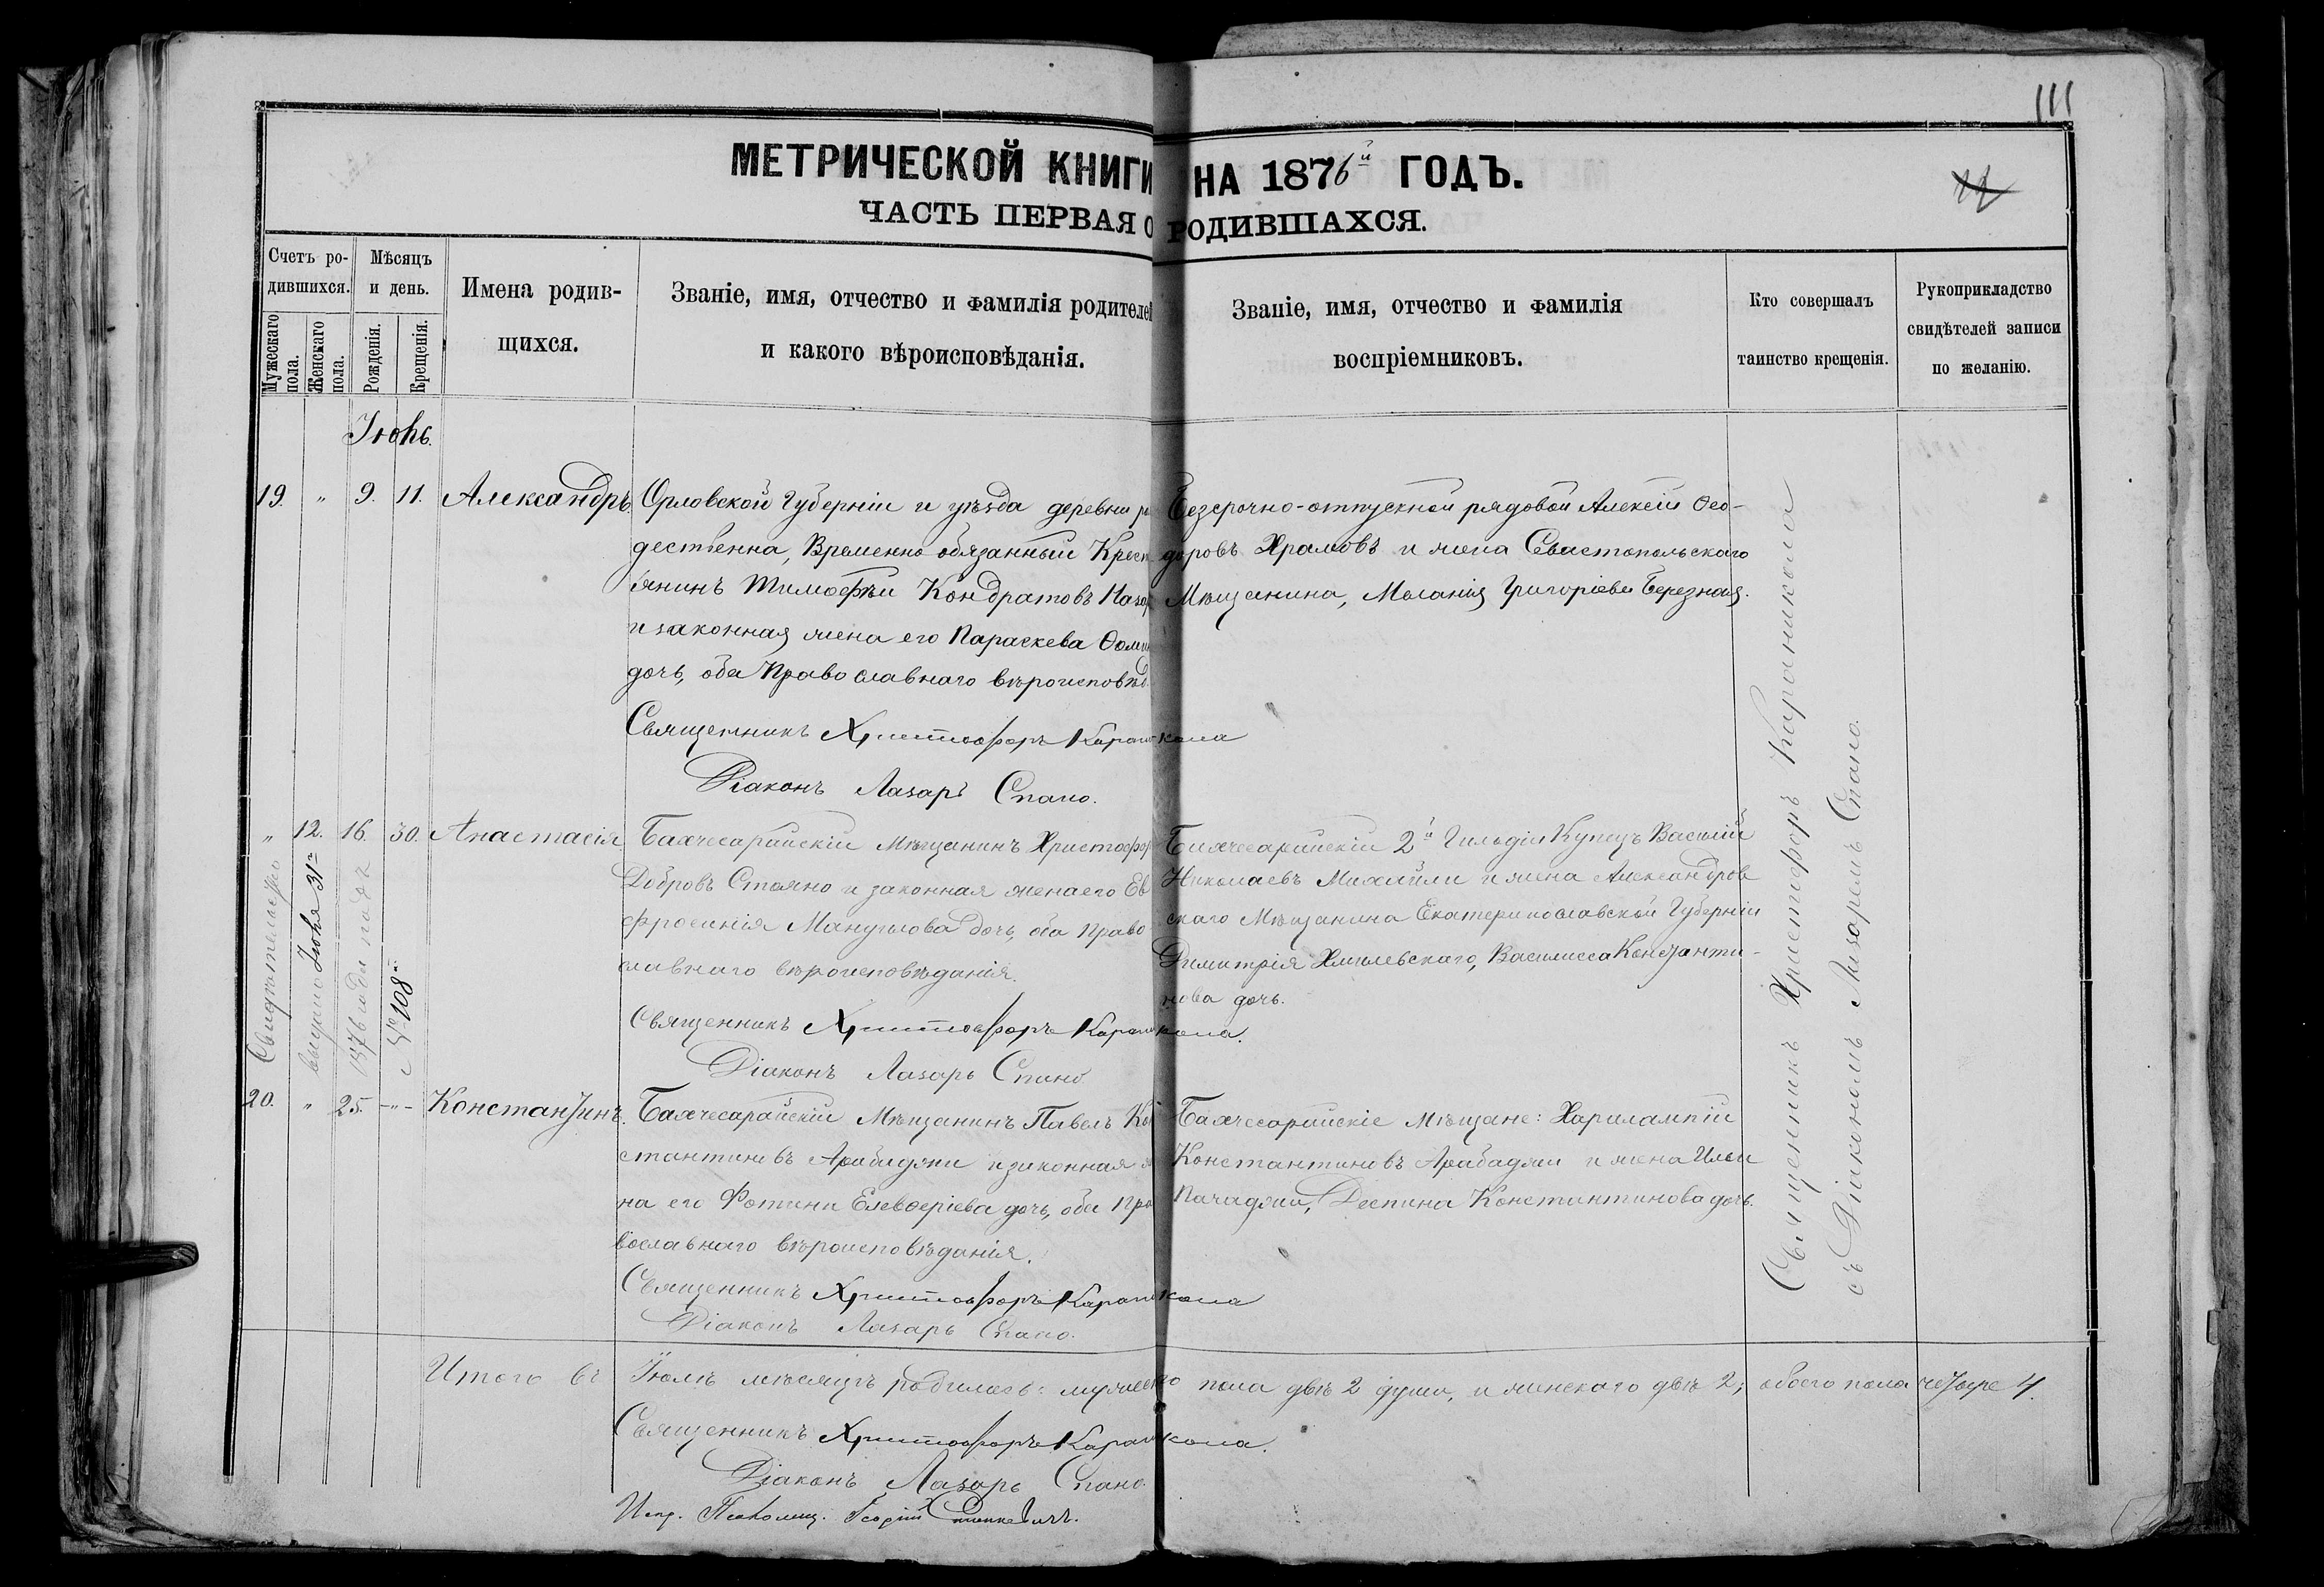 111
МЕТРИЧЕСКОЙ КНИГИ НА 1876й ГОДЪ.
ЧАСТЬ ПЕРВАЯ О РОДИВШАХСЯ.
Счетъ ро-
дившихся.
Мужескаго пола.
Женскаго пола.
Мѣсяцъ
и день.
Рожденія.
Крещенія.
Имена родив-
щихся.
Званіе, имя, отчество и фамилія родителей
и какого вѣроисповѣданія.
Званіе, имя, отчество и фамилія
воспріемниковъ.
Кто совершалъ
таинство крещенія.
Рукоприкладство
свидѣтелей записи
по желанію.
19. " 9. 11. Александръ.
Орловской Губерніи и уѣзда деревни
дественна, Временно обязанный Крест
янинъ Тимофѣй Кондратовъ Назар
и законная жена его Параскева Ѳоми
дочь, оба Православнаго вѣроисповѣд.
Священникъ Христофоръ Караникола
Діаконъ Лазарь Спано.
Безсрочно-отпускной рядовой Алексій Ѳео-
доровъ Храмовъ и жена Севастопольскаго
Мѣщанина, Меланія Григоріева Березная.
" 12. 16. 30. Анастасія
Свидѣтельство
выдано Іюня 31го
1876 года подъ
с № 108м
Бахчесарайскій Мѣщанинъ Христофор
Добровъ Стояно и законная жена его Ев
фросинія Мануилова дочь, оба Право
славнаго вѣроисповѣданія.
Священникъ Христофоръ Караникола.
Діаконъ Лазарь Спано
Бахчесарайскій 2й Гильдіи Купецъ Василій
Николаевъ Михайли и жена Александров
скаго Мѣщанина Екатеринославской Губерніи
Димитрія Хмилевскаго, Василисса Константи-
нова дочь.
20. " 25. -"- Константинъ.
Бахчесарайскій Мѣщанинъ Павелъ Кон
стантиновъ Арабаджи и законная же
на его Фотини Елевѳеріева дочь, оба Пра
вославнаго вѣроисповѣданія.
Священникъ Христофоръ Караникола
Діаконъ Лазарь Спано.
Бахчесарайскіе Мѣщане: Харилампій
Константиновъ Арабаджи и жена Ильи
Пачаджи, Деспина Константинова дочь.
Священникъ Христофоръ Караникола
съ Діакономъ Лазаремъ Спано.
Итого въ Іюнѣ мѣсяцѣ родилось: мужескаго пола двѣ 2 души, и женскаго двѣ 2; обоего пола четыре 4.
Священникъ Христофоръ Караникола.
Діаконъ Лазарь Спано.
Испр. Псаломщ. Георгій